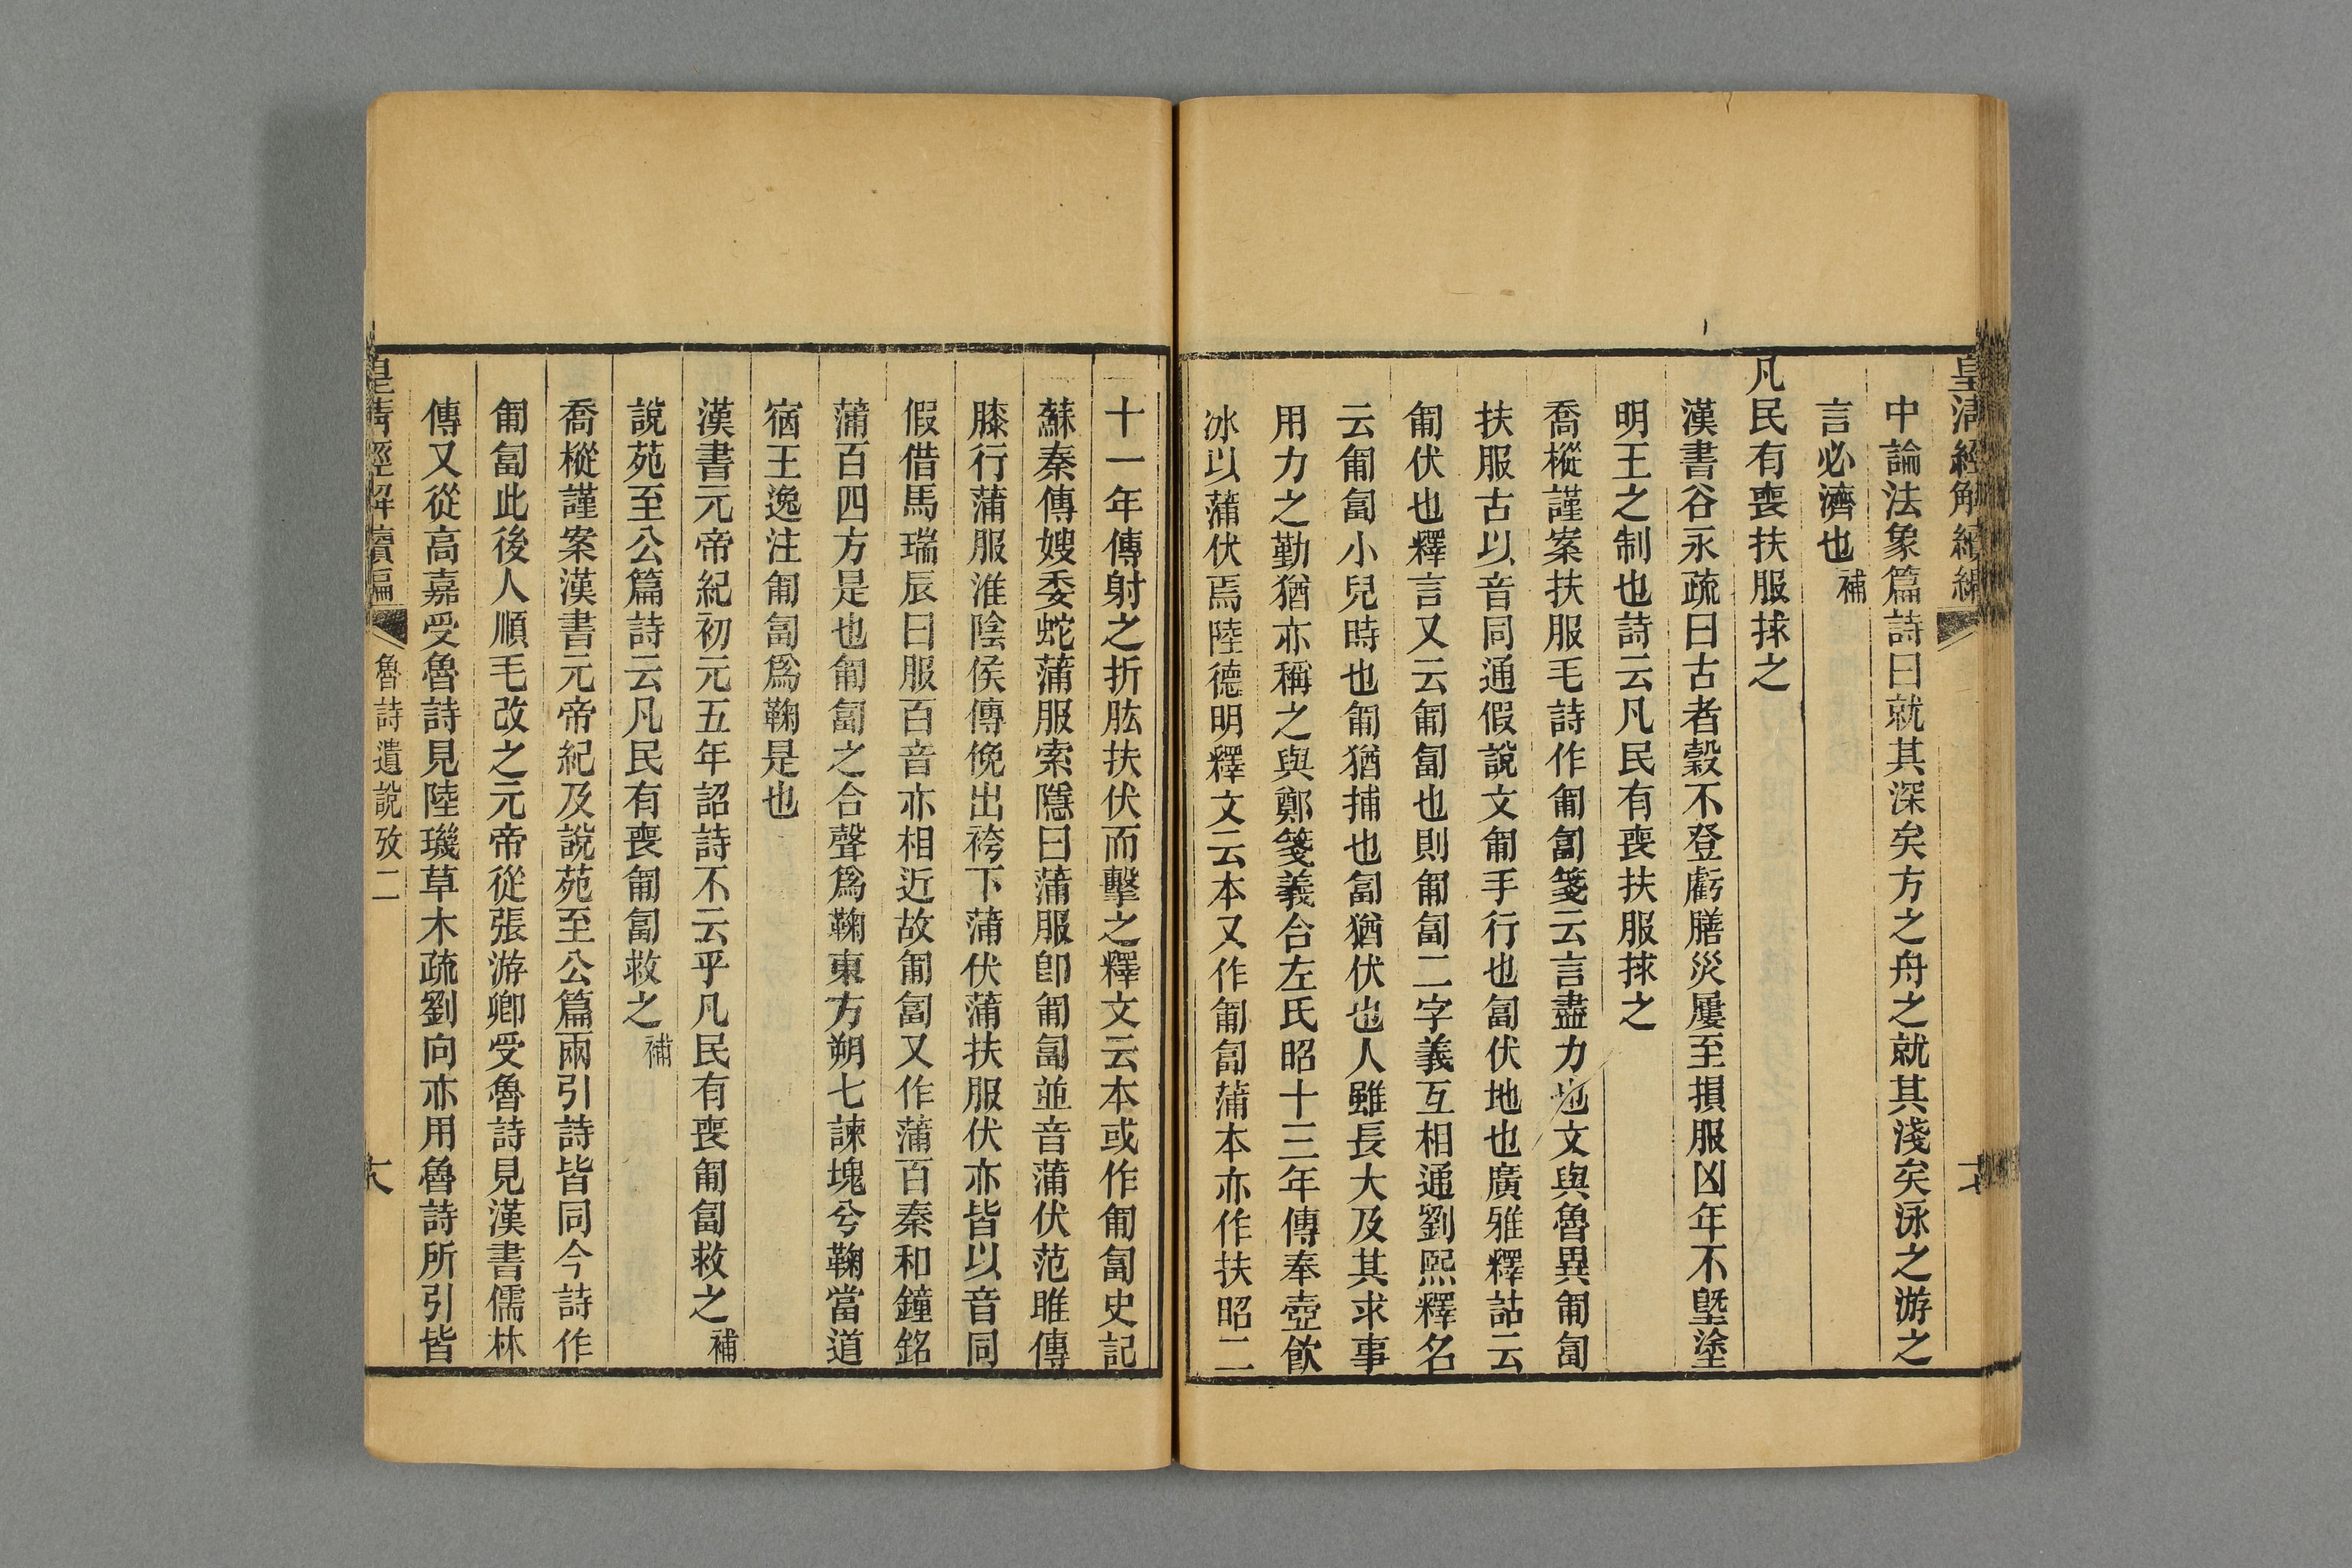 皇清經解續編
中論法象篇詩曰就其深矣方之舟之就其淺矣泳之游之
言必濟也補
凡民有喪扶服捄之
漢書谷永疏曰古者穀不登虧膳災屢至損服凶年不塈塗
明王之制也詩云凡民有喪扶服捄之
喬樅謹案扶服毛詩作匍匐箋云言盡力也文與魯異匍匐
扶服古以音同通假說文匍手行也匐伏地也廣雅釋詁云
匍伏也釋言又云匍匐也則匍匐二字義互相通劉熙釋名
云匍匐小兒時也匍猶捕也匐猶伏也人雖長大及其求事
用力之勤猶亦稱之與鄭箋義合左氏昭十三年傳奉壺飲
冰以蒲伏焉陸德明釋文云本又作匍匐蒲本亦作扶昭二
十一年傳射之折肱扶伏而擊之釋文云本或作匍匐史記
蘇秦傳嫂委蛇蒲服索隱曰蒲服卽匍匐並音蒲伏范雎傳
膝行蒲服淮陰侯傳俛出袴下蒲伏蒲扶服伏亦皆以音同
假借馬瑞辰曰服百音亦相近故匍匐又作蒲百秦和鐘銘
蒲百四方是也匍匐之合聲爲鞠東方朔七諫塊兮鞠當道
宿王逸注匍匐爲鞠是也
漢書元帝紀初元五年詔詩不云乎凡民有喪匍匐救之補
說苑至公篇詩云凡民有喪匍匐救之補
喬樅謹案漢書元帝紀及說苑至公篇兩引詩皆同今詩作
匍匐此後人順毛改之元帝從張游卿受魯詩見漢書儒林
傳又從高嘉受魯詩見陸璣草木疏劉向亦用魯詩所引皆
皇清經解續編 魯詩遺說攷二 十八